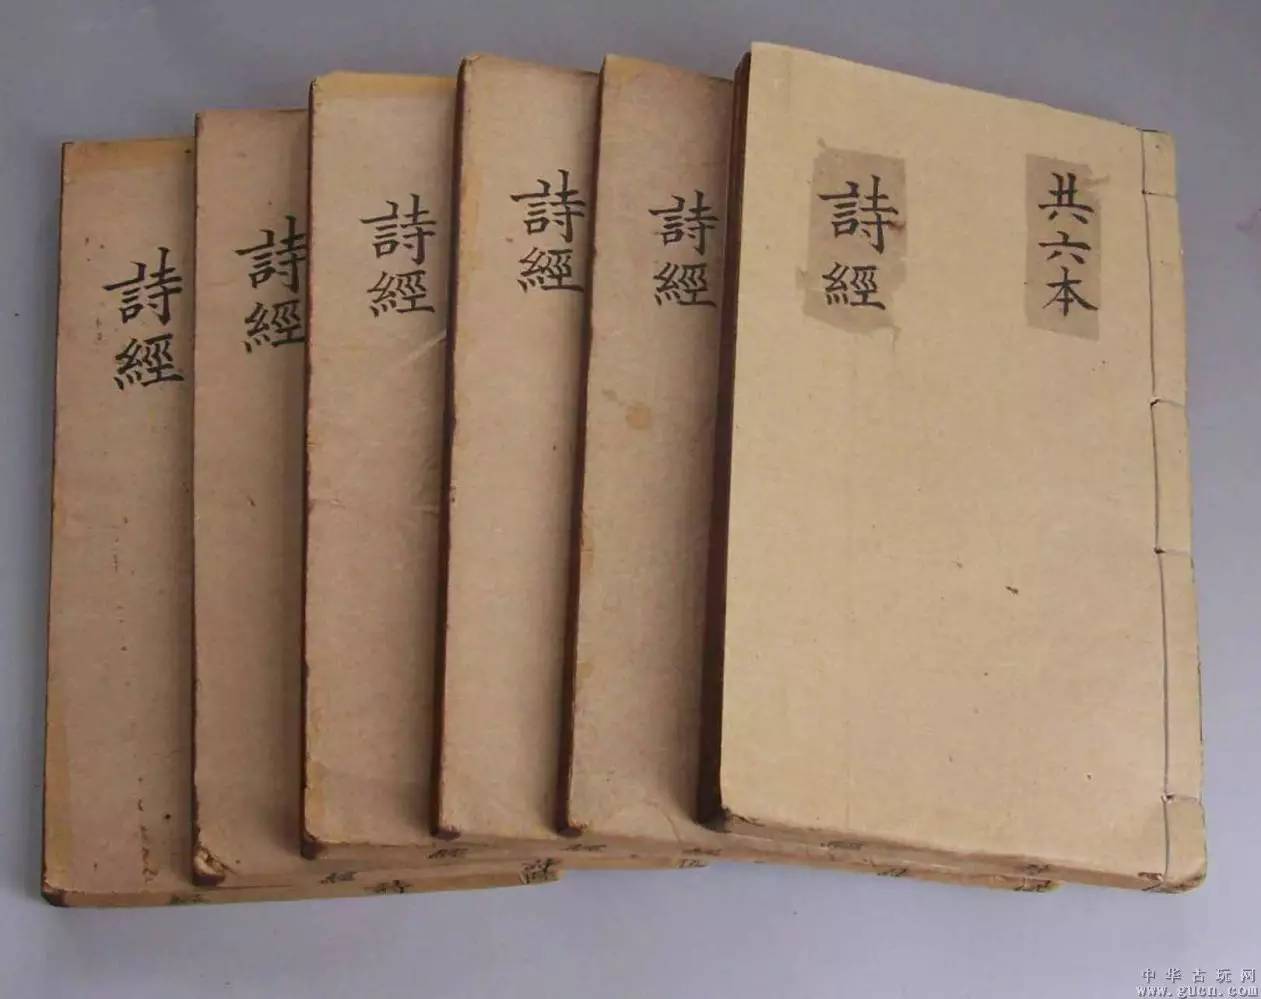 詩經
詩經
詩經
詩經
詩經
詩經
共六本
中华古玩网
www.gucn.com